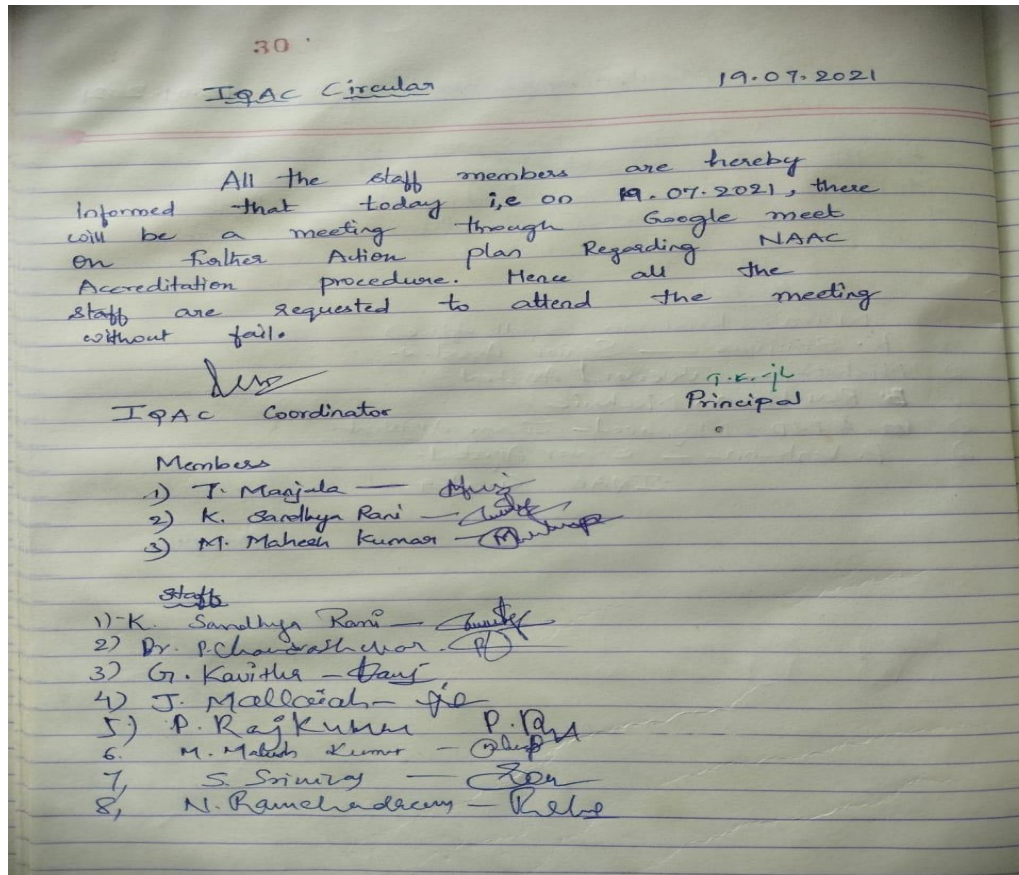 30
IQAC Circular 19.07.2021
All the staff members are hereby
Informed that today i,e on 19.07.2021, there
will be a meeting through Google meet
on further Action plan Regarding NAAC
Accreditation procedure. Hence all the
staff are requested to attend the meeting
without fail.
IQAC Coordinator Principal
Members
1) T. Manjula —
2) K. Sandhya Rani —
3) M. Mahesh Kumar —
Staff
1) K. Sandhya Rani —
2) Dr. P. Chandrashekar.
3) G. Kavitha —
4) J. Mallaiah —
5) P. Raj Kumar
6. M. Mahesh Kumar —
7, S. Srinivas —
8, N. —